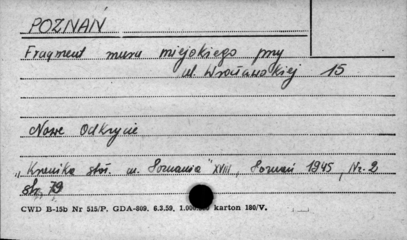 POZNAŃ
Fragment muru miejskiego przy
ul. Wrocławskiej 15
Nowe Odkrycie
"Kronika stoł. m. Poznania" XVIII, Poznań 1945, Nr. 2
str. 79
CWD B-15b Nr 515/P. GDA-809. 6.3.59. 1.000.000 karton 180/V.